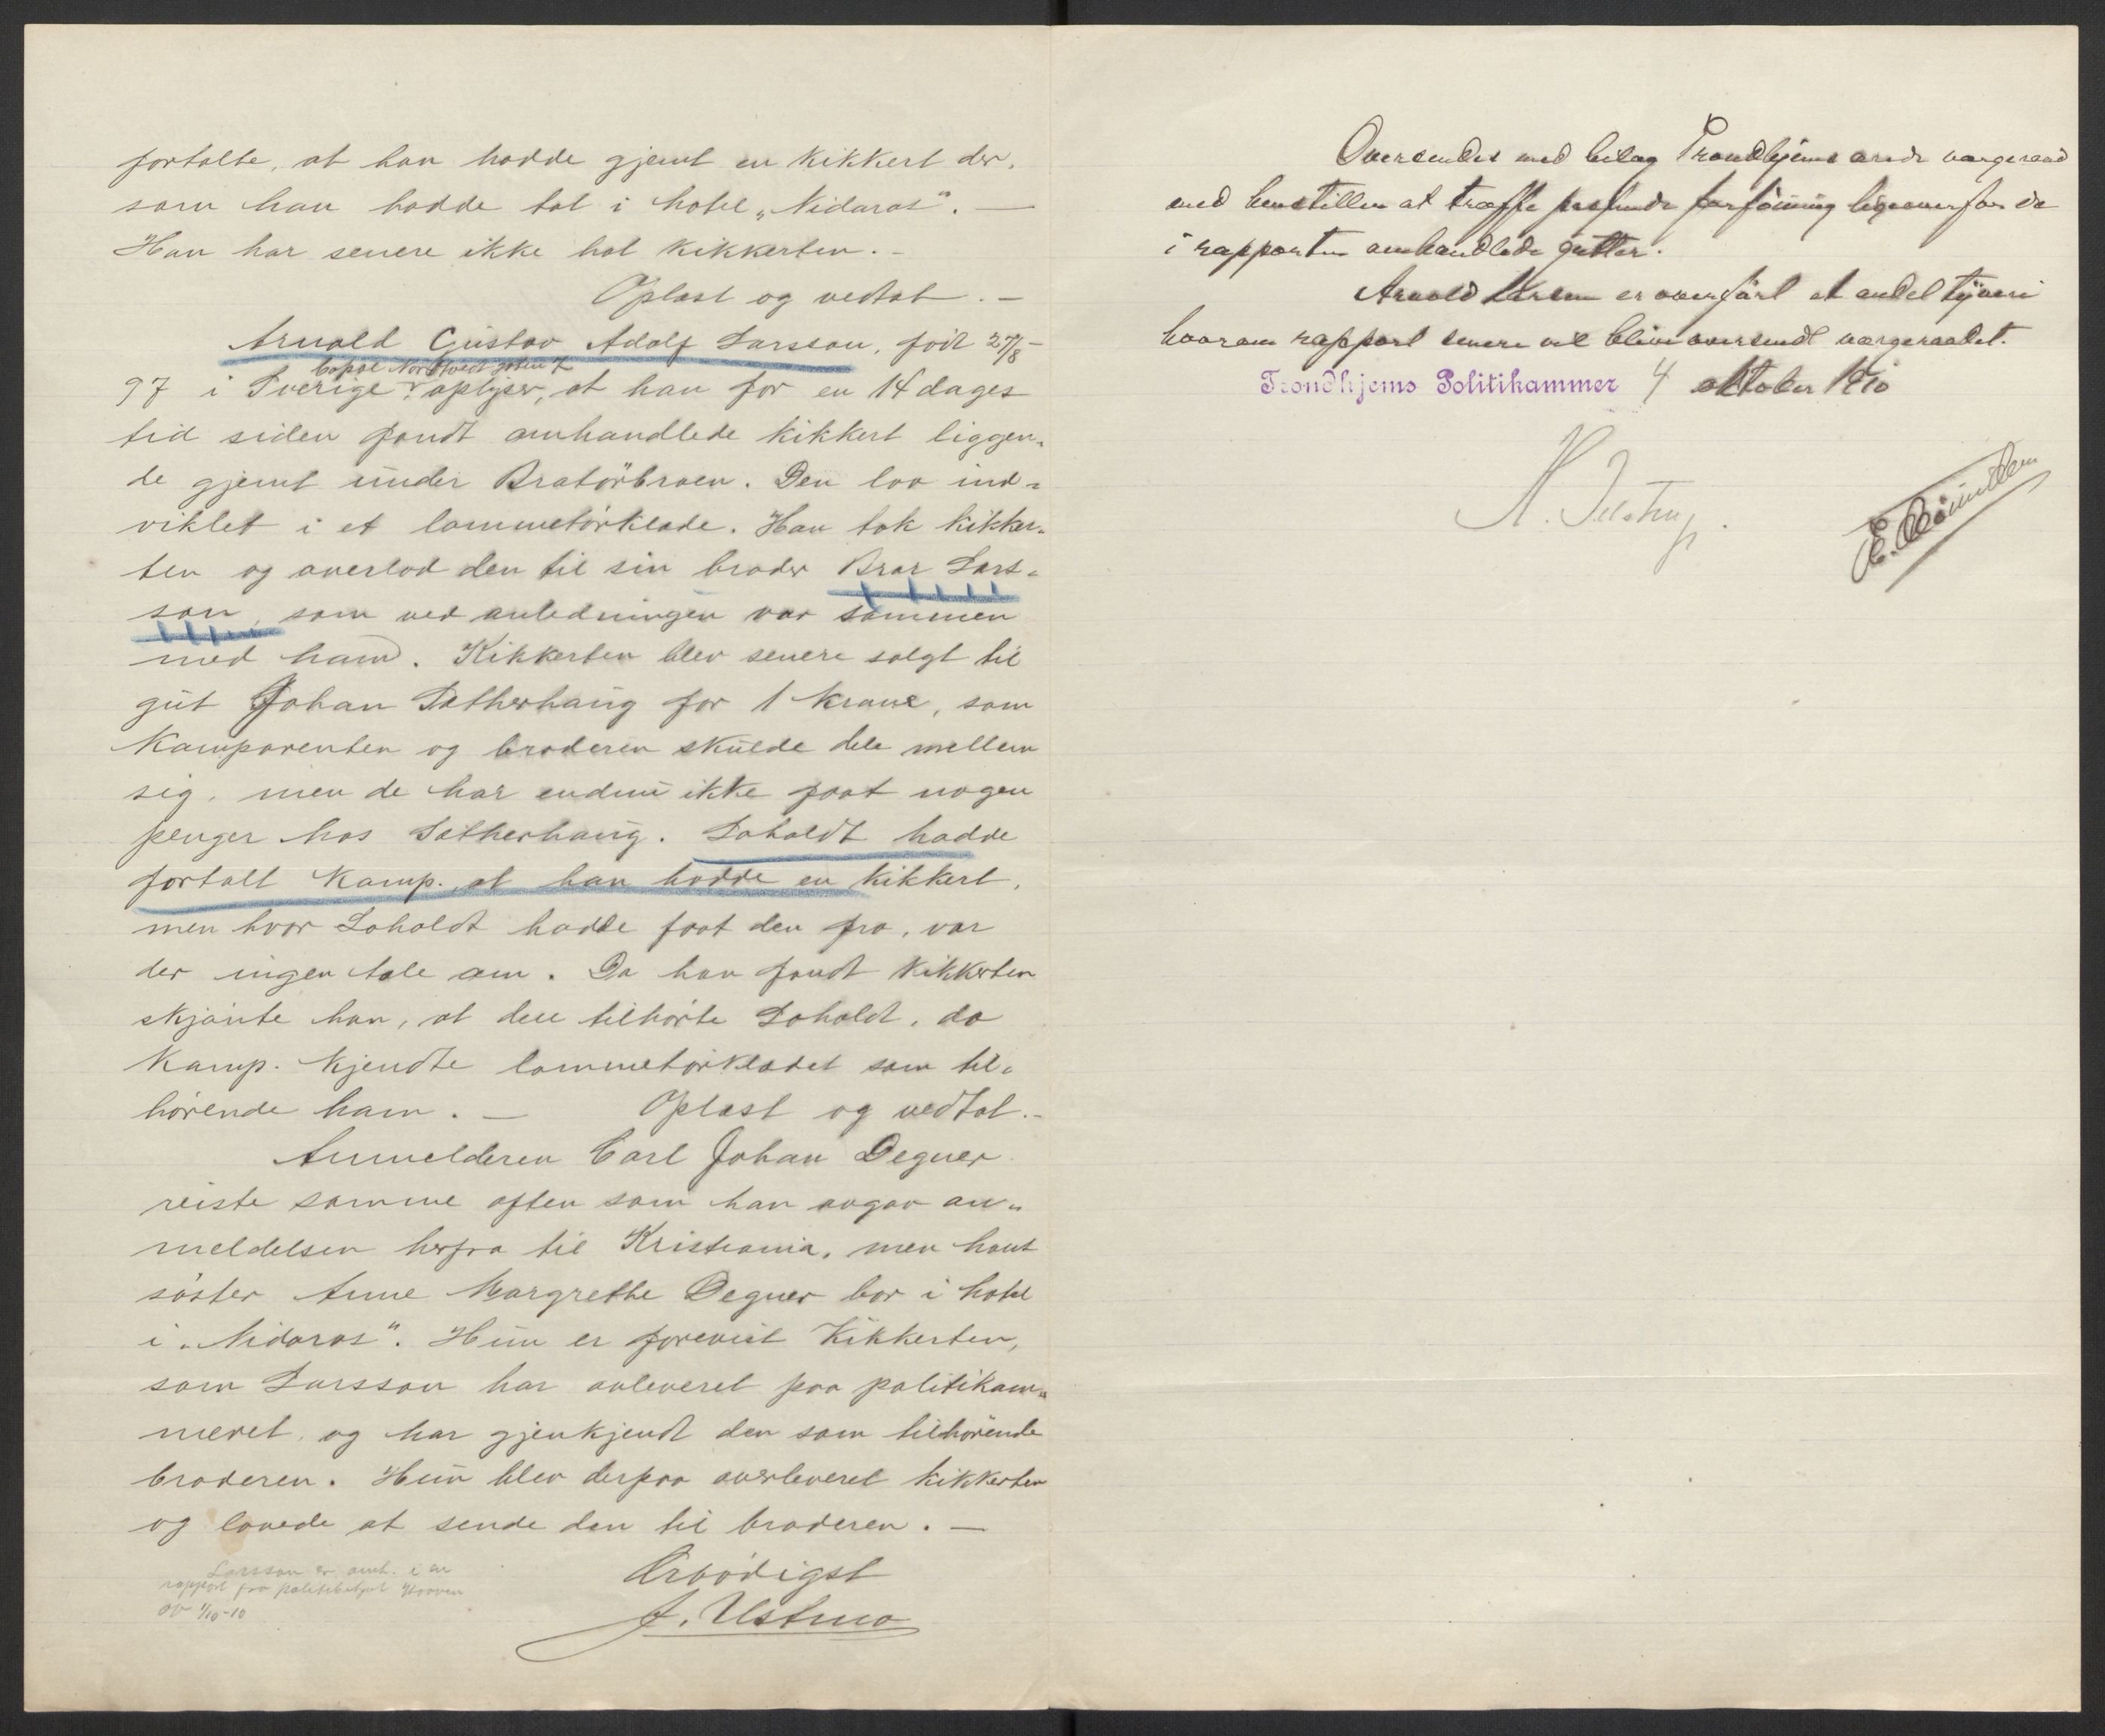 fortalte, at han hadde gjemt en kikkert der,
som han hadde tat i hotel „Nidaros". —
Han har senere ikke hat kikkerten. –
Oplæst og vedtat. –
Arnold Gustav Adolf Larsson, født 27/8-
bopæl Nordtvedtgaten 7
97 i Sverige oplyser, at han for en 14 dages
tid siden fandt omhandlede kikkert liggen-
de gjemt under Bratörbroen. Den laa ind-
viklet i et lommetørklæde. Han tok kikker-
ten og overlod den til sin broder Bror Lars-
son, som ved anledningen var sammen
med ham. Kikkerten blev senere solgt til
gut Johan Sætherhaug for 1 krone, som
Komparenten og broderen skulde dele mellem
sig, men de har endnu ikke faat nogen
penger hos Sætherhaug. Loholdt hadde
fortalt Komp., at han hadde en kikkert,
men hvor Loholdt hadde faat den fra, var
der ingen tale om. Da han fandt kikkerten
skjönte han, at den tilhørte Loholdt, da
Komp. kjendte lommetørklædet som til-
hørende ham. — Oplæst og vedtat. –
Anmelderen Carl Johan Degner
reiste samme aften som han avgav an-
meldelsen herfra til Kristiania, men hans
söster Anne Margrethe Degner bor i hotel
i „Nidaros". Hun er forevist Kikkerten,
som Larsson har avleveret paa politikam-
meret, og har gjenkjendt den som tilhørende
broderen. Hun blev derpaa overleveret kikkerten
og lovede at sende den til broderen. —
Ærbødigst
A. Ustmo
Larsson er omh. i en
rapport fra politibetjent
av 1/10-10
Oversendes med bilag Trondhjems værgeraad
med henstillen at træffe fornødne forføining ligeoverfor de
i rapporten omhandlede gutter.
Arnold er overført et andet tyveri
hvorom rapport senere vil blive oversendt værgeraadet.
Trondhjems Politikammer 4 oktober 1910